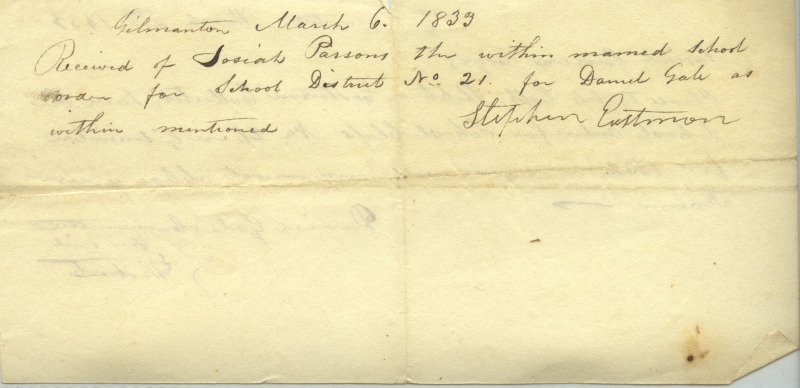 Gilmanton March 6. 1833
Received of Josiah Parsons the within named School
order for School District No 21. for Daniel Gale as
within mentioned
Stephen Eastman